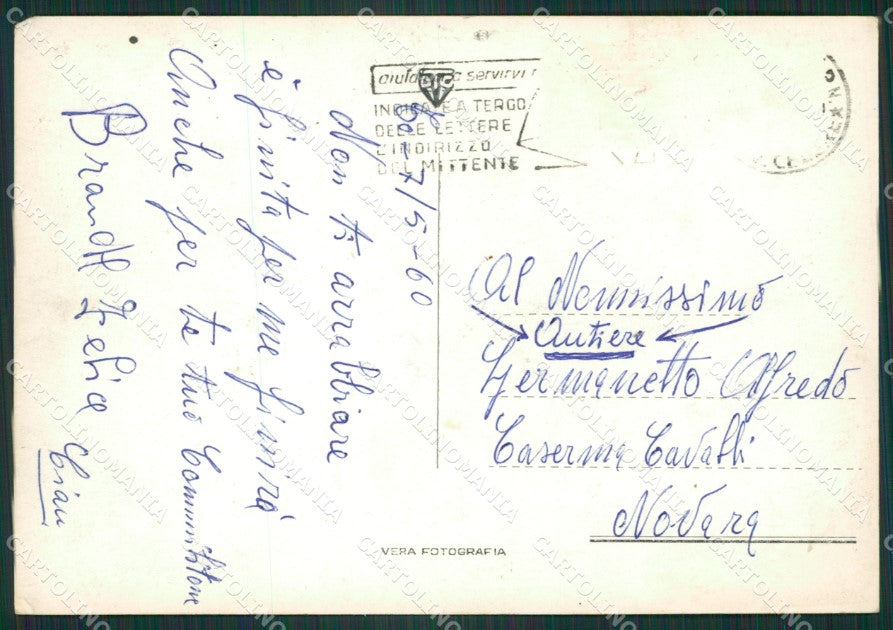 aiutateci a servirvi
INDICATE A TERGO
DELLE LETTERE
L'INDIRIZZO
DEL MITTENTE
7/5-60
Non ti arrabbiare
è finita per me finirà
Anche per te tuo
Brandt Felice
Ciau
Al Nonnissimo
Autiere
Germanetto Alfredo
Caserma Cavalli
Novara
VERA FOTOGRAFIA
CARTOLINOMANIA